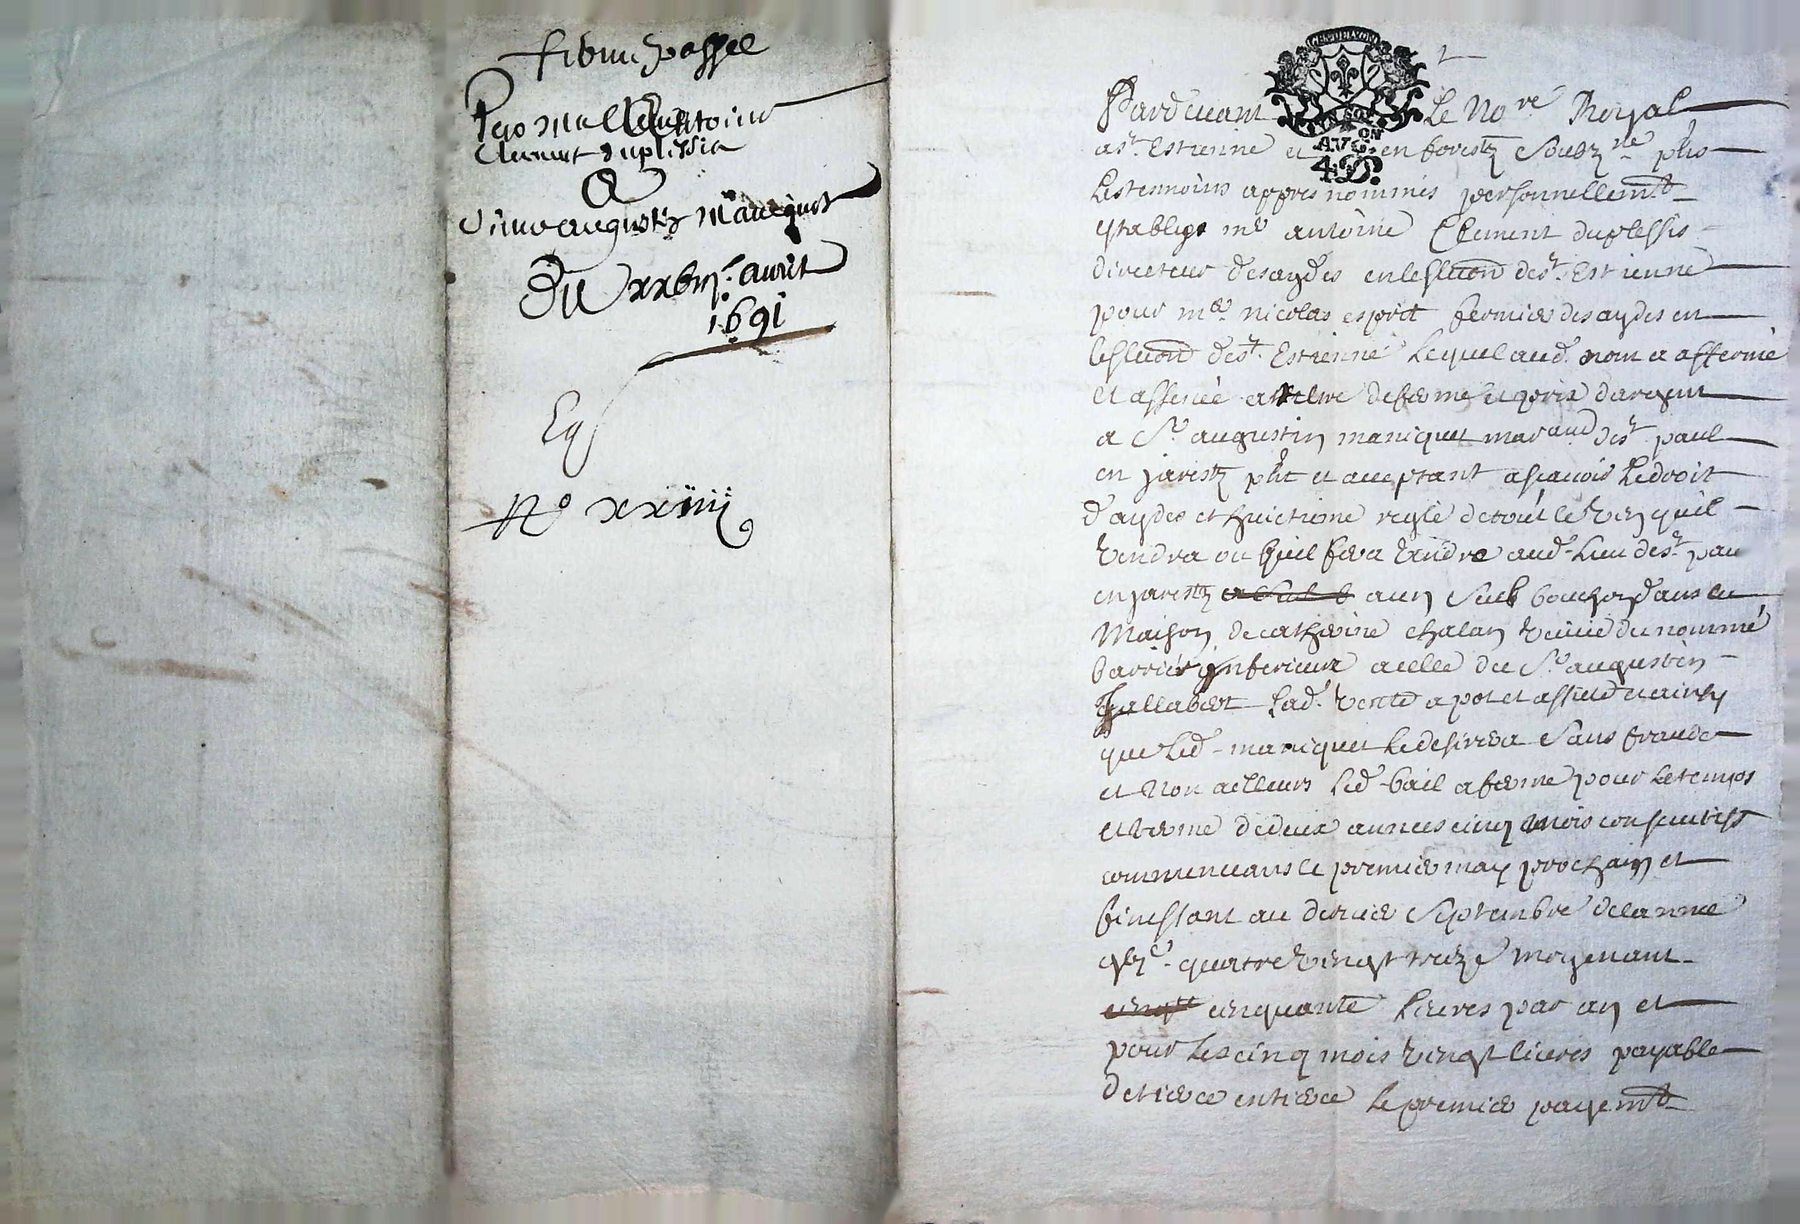 ferme passee
Par Me Anthoine
Clement duplessis
A
Sieur augustin Maniquet
Du xxbiije. avril
1691
No xxiiij
GEN DE LYON
2
Pardevant Le Nore Royal
a St. Estienne et en forestz Soubzne. pnt
Les temoins appres nommés personnellemt
establys me antoine Clement duplessis
directeur desaydes en leslection dest. Estienne
pour me nicolas esprit fermier des aydes en
leslection dest. Estienne Lequel aud. nom a affermé
et assencé a tiltre deferme et prix dargent
a Sr augustin maniquet marchand dest. paul
en jarestz pnt et acceptant ascavoir Ledroit
d'aydes et huictieme reglé detout le vin quil
vendra ou quil fera vendre aud. Lieu dest. paul
en jarestz a un Seul bouchon dans la
Maison de catherine chalan veuve du nommé
barrier inferieure acelle du Sr. augustin
Lad. vente a pot et assiette et ainsy
que Led. maniquet Le desirera Sans fraude
et Non ailleurs Led. bail aferme pour Letemps
et terme de deux annees cinq mois consecutifs
commencans le premier may prochain et
finissant au dernier Septembre delannee
gbjc. quatre vingt treize Moyenant
cinquante Livres par an et
pour Les cinq mois vingt livres payable
de tierce en tierce Le premier payemt